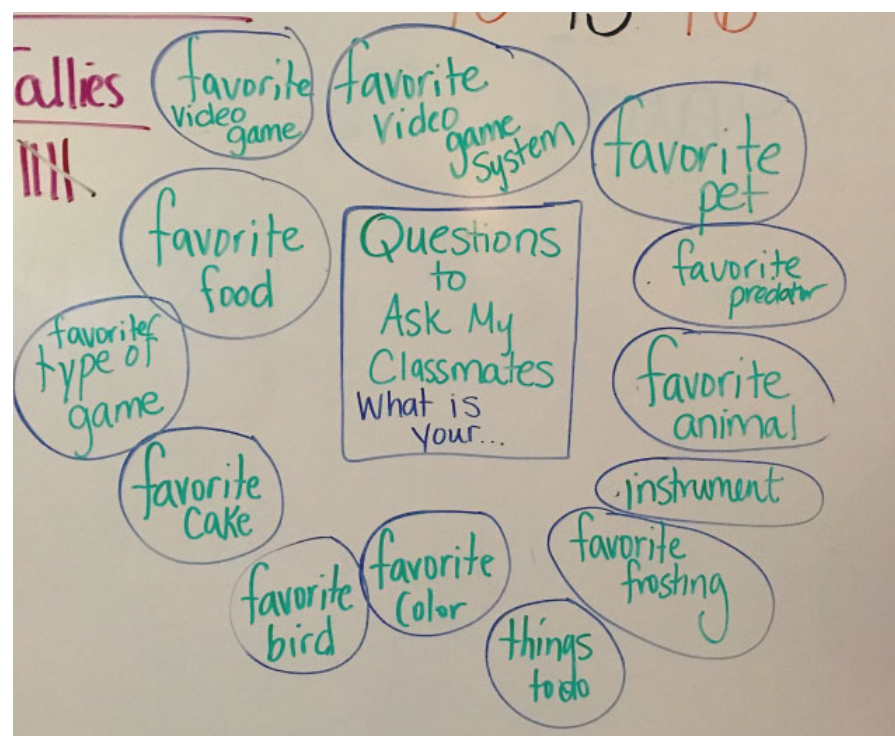 allies
favorite
video
game
favorite
video
game
system
favorite
pet
favorite
food
Questions
to
Ask My
Classmates
What is
your...
favorite
predator
favorite
type of
game
favorite
animal
favorite
cake
instrument
favorite
frosting
favorite
color
favorite
bird
things
to do